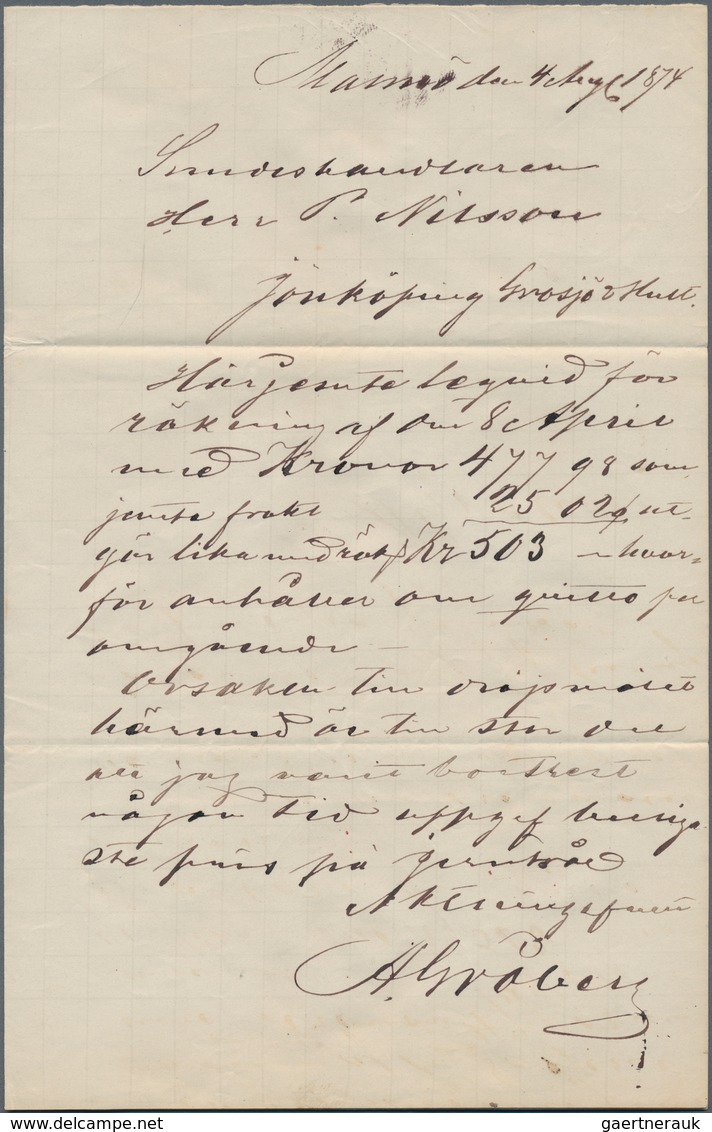 Malmö den 4 Aug 1874
Smideshandlaren
Herr P. Nilsson
Jönköping
Härjemte leqvid för
räkning af den 8 April
med Kronor 477 98 som
jemte frakt 25 02 ut-
gör lika med räk Kr 503 hvar-
för anhåller om qvitto per
omgående –
Orsaken till dröjsmålet
härmed är till stor del
att jag varit bortrest
någon tid uppgif billiga-
ste pris på jerntråd
Aktningsfullt
A. Gröberg
gaertnerauk